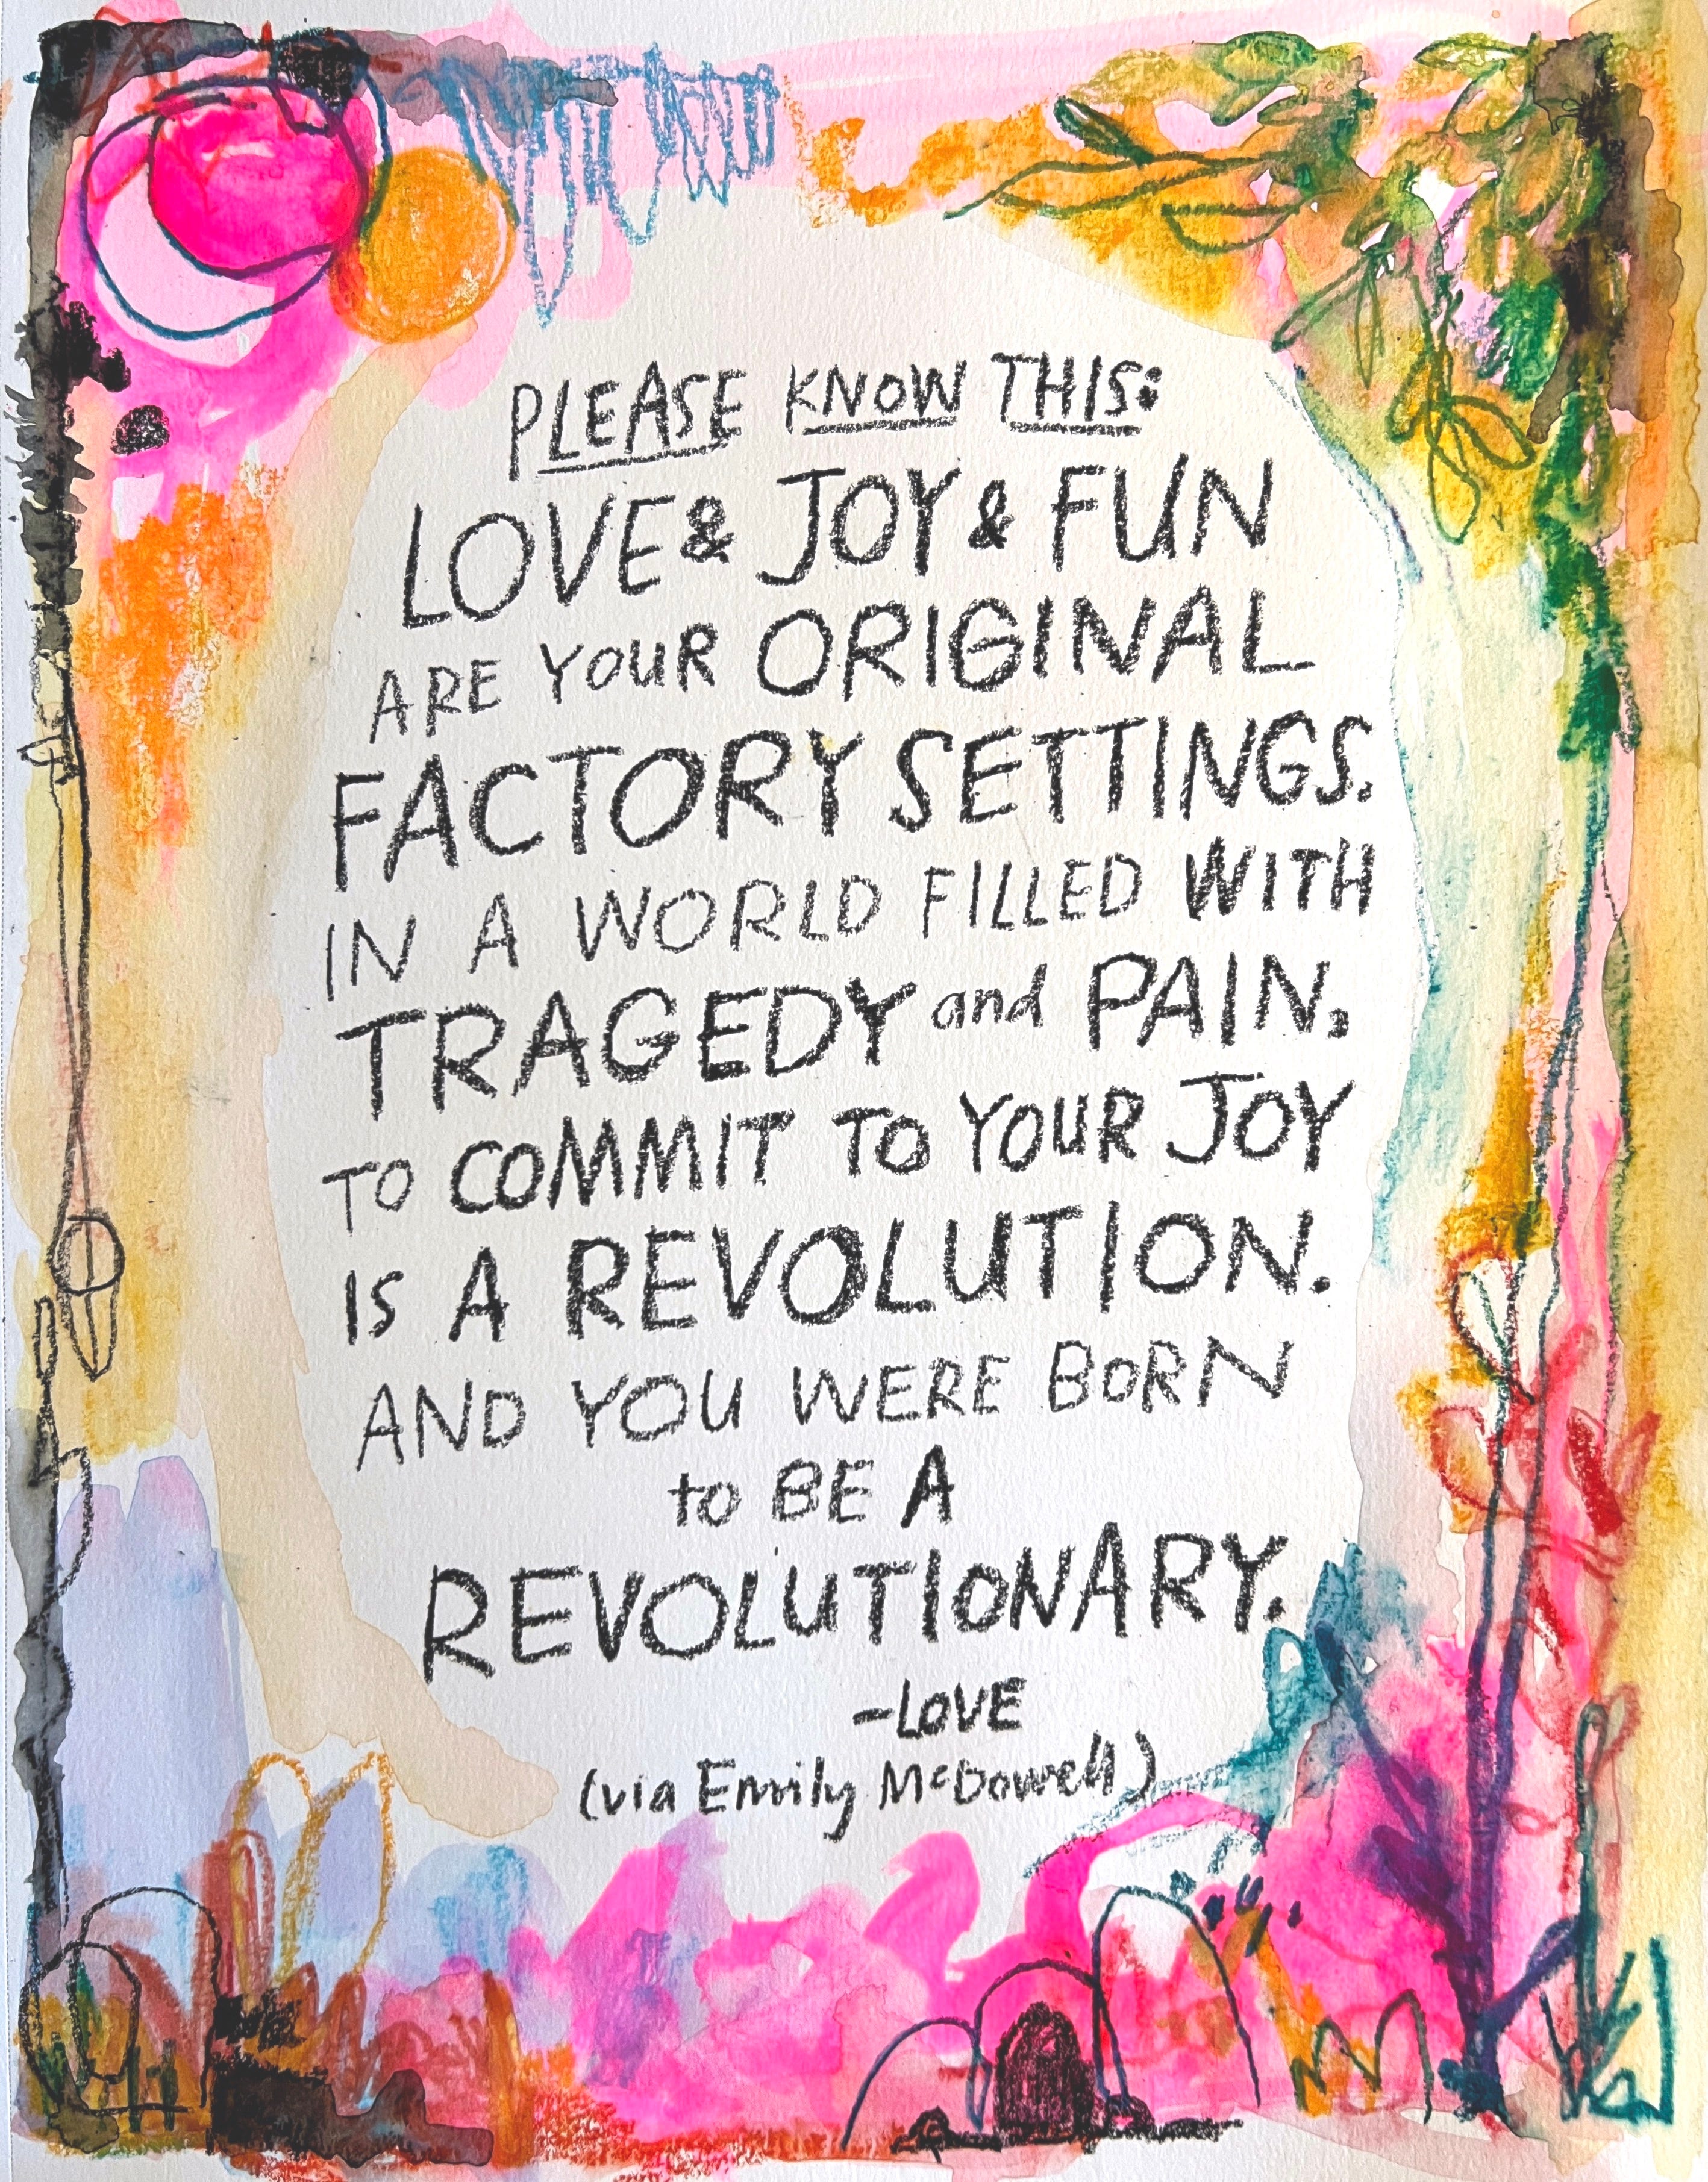 PLEASE KNOW THIS:
LOVE & JOY & FUN
ARE YOUR ORIGINAL
FACTORY SETTINGS.
IN A WORLD FILLED WITH
TRAGEDY and PAIN,
TO COMMIT TO YOUR JOY
IS A REVOLUTION.
AND YOU WERE BORN
to BE A
REVOLUTIONARY.
-LOVE
(via Emily McDowell)